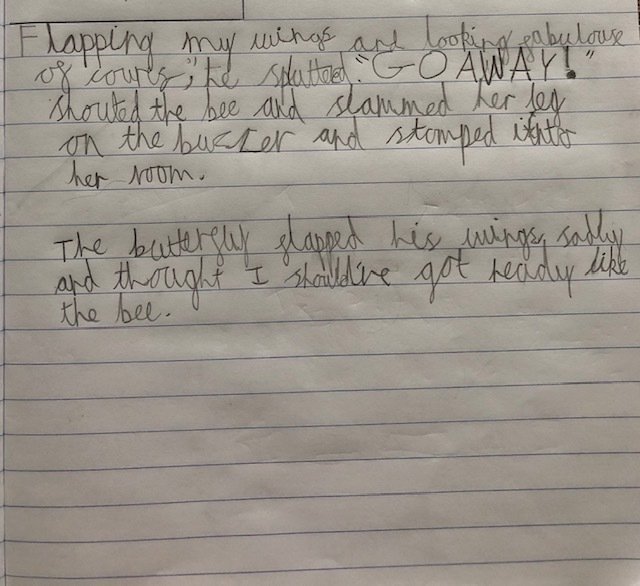 Flapping my wings and looking fabulouse
of cours," he spluttered. "GO AWAY!"
shouted the bee and slammed her leg
on the buzzer and stomped into
her room.
The butterfly flapped his wings sadly
and thought I should've got ready like
the bee.